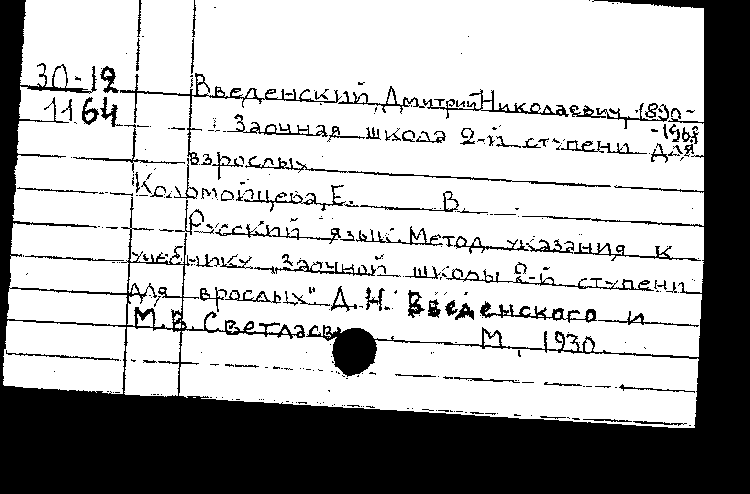 30-12
1164
Введенский, Дмитрий Николаевич, 1890-
-1968
Заочная школа 2-й ступени для
взрослых
Коломойцева, Е. В.
Русский язык. Метод. указания к
учебнику „Заочной школы 2-й ступени
для врослых" Д. Н. Введенского и
М. В. Светлаева
М., 1930.